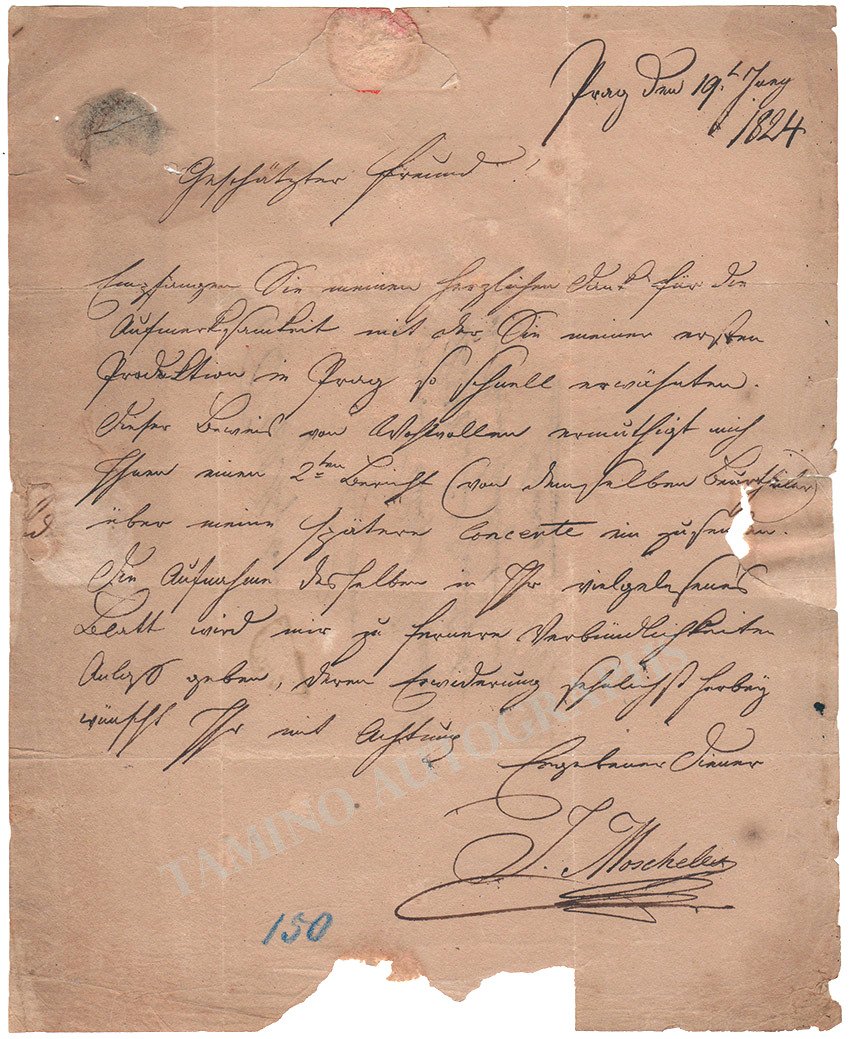 Prag den 19t Juny
1824
Geschätzter Freund!
Empfangen Sie meinen herzlichen Dank für die
Aufmerksamkeit mit der Sie meiner ersten
Produktion in Prag so schnell erwähnten.
Dieser Beweis von Wohlwollen ermuthigt mich
Ihnen einen 2ten Bericht (von demselben Beurtheiler)
über meine spätern Concerte ein zusenden.
Die Aufnahme desselben in Ihr vielgelesenes
Blatt wird mir zu fernern Verbindlichkeiten
Anlaß geben, deren Erwiderung sehnlichst herbey
wünscht Ihr mit Achtung
Ergebener Diener
J. Moscheles
150
TAMINO AUTOGRAPHS